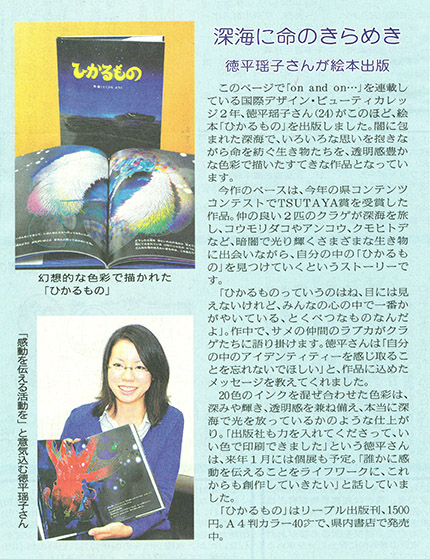 深海に命のきらめき
徳平瑶子さんが絵本出版
このページで「on and on…」を連載
している国際デザイン・ビューティカレッ
ジ2年、徳平瑶子さん(24)がこのほど、絵
本「ひかるもの」を出版しました。闇に包
まれた深海で、いろいろな思いを抱きな
がら命を紡ぐ生き物たちを、透明感豊か
な色彩で描いたすてきな作品となってい
ます。
今作のベースは、今年の県コンテンツ
コンテストでTSUTAYA賞を受賞した
作品。仲の良い2匹のクラゲが深海を旅
し、コウモリダコやアンコウ、クモヒトデ
など、暗闇で光り輝くさまざまな生き物
に出会いながら、自分の中の「ひかるも
の」を見つけていくというストーリーで
す。
「ひかるものっていうのはね、目には見
えないけれど、みんなの心の中で一番か
がやいている、とくべつなものなんだ
よ」。作中で、サメの仲間のラブカがクラ
ゲたちに語り掛けます。徳平さんは「自分
の中のアイデンティティーを感じ取るこ
とを忘れないでほしい」と、作品に込めた
メッセージを教えてくれました。
20色のインクを混ぜ合わせた色彩は、
深みや輝き、透明感を兼ね備え、本当に深
海で光を放っているのかのような仕上が
り。「出版社も力を入れてくださって、い
い色で印刷できました」という徳平さん
は、来年1月には個展も予定。「誰かに感
動を伝えることをライフワークに、これ
からも創作していきたい」と話していま
した。
「ひかるもの」はリーブル出版刊、1500
円。A4判カラー40㌻で、県内書店で発売
中。
ひかるもの
幻想的な色彩で描かれた
「ひかるもの」
「感動を伝える活動を」と意気込む徳平瑶子さん